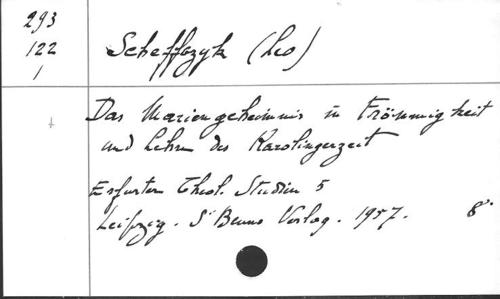 293
122
1
Scheffczyk (Leo)
Das Mariengeheimnis in Frömmigkeit
und Lehre der Karolingerzeit
Erfurter Theol. Studien 5
Leipzig. St Benno Verlag. 1957. 8°